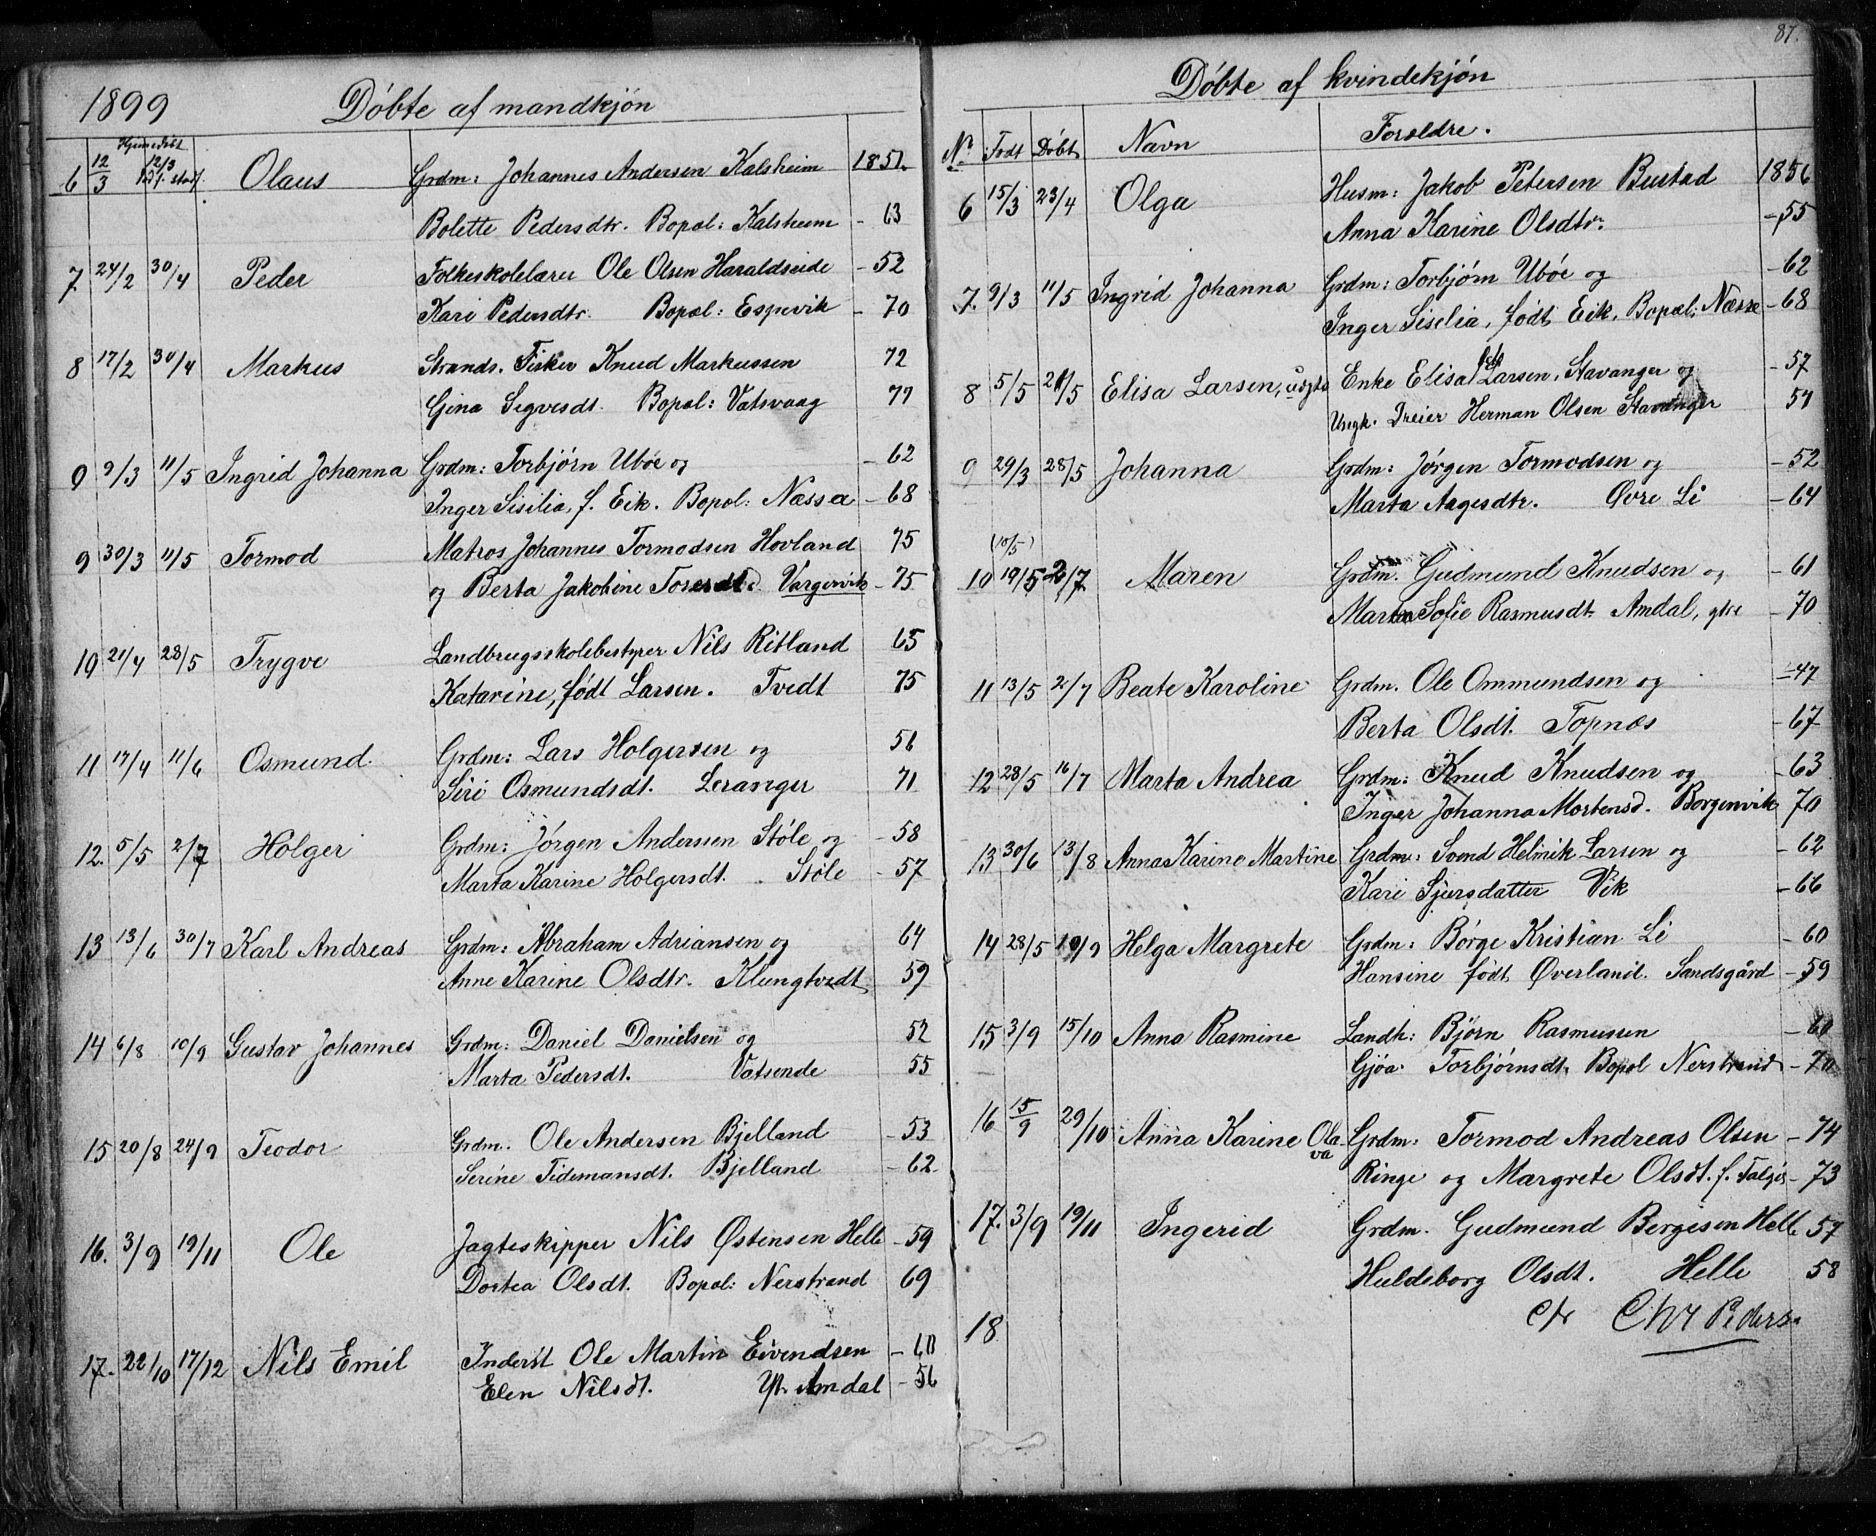 1899 Döbte af mandkjön
6 12/3 Hjemmedöbt 12/3 Olaus Grdm: Johannes Andersen Kalsheim 1851.
Bolette Pedersdtr. Bopæl: Kalsheim – 63
7 24/2 30/4 Peder Folkeskolelærer Ole Olsen Haraldseide – 52
Kari Pedersdtr. Bopæl: Espevik – 70
8 17/2 30/4 Markus Strands. Fisker Knud Markussen 72
Gina Sigvesdt. Bopæl: Vatsvaag 77
9 9/3 11/5 Ingrid Johanna Grdm: Torbjörn Uböe og – 62
Inger Sisilia, f. Eik. Bopæl: Næssa – 68
9 30/3 11/5 Tormod Matros Johannes Tormodsen Hovland 75
og Berta Jakobine Vargervik – 75
10 21/4 28/5 Trygve Landbrugsskolebestyrer Nils Ritland 65
Katarine, född Larsen. Tvedt 75
11 17/4 11/6 Osmund. Grdm: Lars Holgersen og 56
Siri Osmundsdt. Leranger 71
12. 5/5 2/7 Holger Grdm: Jörgen Anderssen Stöle og – 58
Marta Karine Holgersdt. Stöle – 57
13 13/6 30/7 Karl Andreas Grdm: Abraham Adriansen og 64
Anne Karine Olsdtr. Klungtvedt 59
14 6/8 10/9 Gustav Johannes Grdm: Daniel Danielsen og 52
Marta Pedersdt. Vatsende 55
15 20/8 24/9 Teodor Grdm. Ole Andersen Bjelland – 53
Serine Tidemansdt. Bjelland – 62
16. 3/9 19/11 Ole Jagteskipper Nils Østensen Helle – 59
Dortea Olsdt. Bopæl: Nerstrand 69
17. 22/10 17/12 Nils Emil Inderst Ole Martin Eivendsen – 60
Elen Nilsdt. Yt. Amdal – 56
87.
Döbte af kvindekjön
No Födt Döbt Navn Forældre.
6 15/3 23/4 Olga Husm: Jakob Petersen Bustad 1856
Anna Karine Olsdtr. – 55
7. 9/3 11/5 Ingrid Johanna Grdm: Torbjörn Uböe og – 62
Inger Siselia, födt Eik, Bopæl: Næssa – 68
8 5/5 21/5 Elisa Larsen, uægte Enke Elisa Larsen, Stavanger og – 57
Ungk. Dreier Herman Olsen Stavanger 57
9 29/3 28/5 Johanna Grdm: Jörgen Tormodsen og – 52
Marta Aagesdtr. Øvre Li – 64
(10/5)
10 19/5 2/7 Maren Grdm. Gudmund Knudsen og – 61
Marta Sofie Rasmusdt. Amdal, ytre – 70
11 13/5 2/7 Beate Karoline Grdm. Ole Ommundsen og – 47
Berta Olsdt. Topnæs – 67
12 28/5 16/7 Marta Andrea Grdm: Knud Knudsen og – 63
Inger Johanna Mortensd. Borgenvik 70
13 30/6 13/8 Anna Karine Martine Grdm: Svend Helmik Larsen og – 62
Kari Sjursdatter Vik – 66
14 28/5 10/9 Helga Margrete Grdm: Börge Kristian Li – 60
Hansine födt Øverland. Sandsgård – 59
15 3/9 15/10 Anna Rasmine Landh: Björn Rasmussen – 60
Gjöa Torbjörnsdt. Bopæl Nerstrand – 70
16 15/9 29/10 Anna Karine Olava Grdm: Tormod Andreas Olsen – 74
Ringe og Margrete Olsdt. f. Talgje – 73
17. 3/9 19/11 Ingerid Grdm. Gudmund Bergesen Helle 57
Huldeborg Olsdt. Helle 58
18 Chr Peders